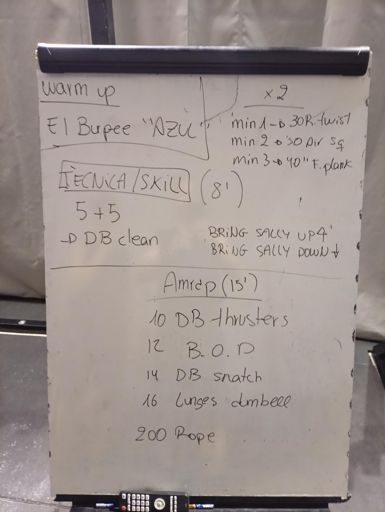 warm up
El Bupee "AZUL"
x 2
min 1 → 30 R. twist
min 2 → 30 Air sq
min 3 → 40" F. plank
TECNICA/SKILL (8')
5+5
→ DB clean
BRING SALLY UP ↑
BRING SALLY DOWN ↓
Amrap (15')
10 DB thrusters
12 B.O.D
14 DB snatch
16 Lunges dumbell
200 Rope